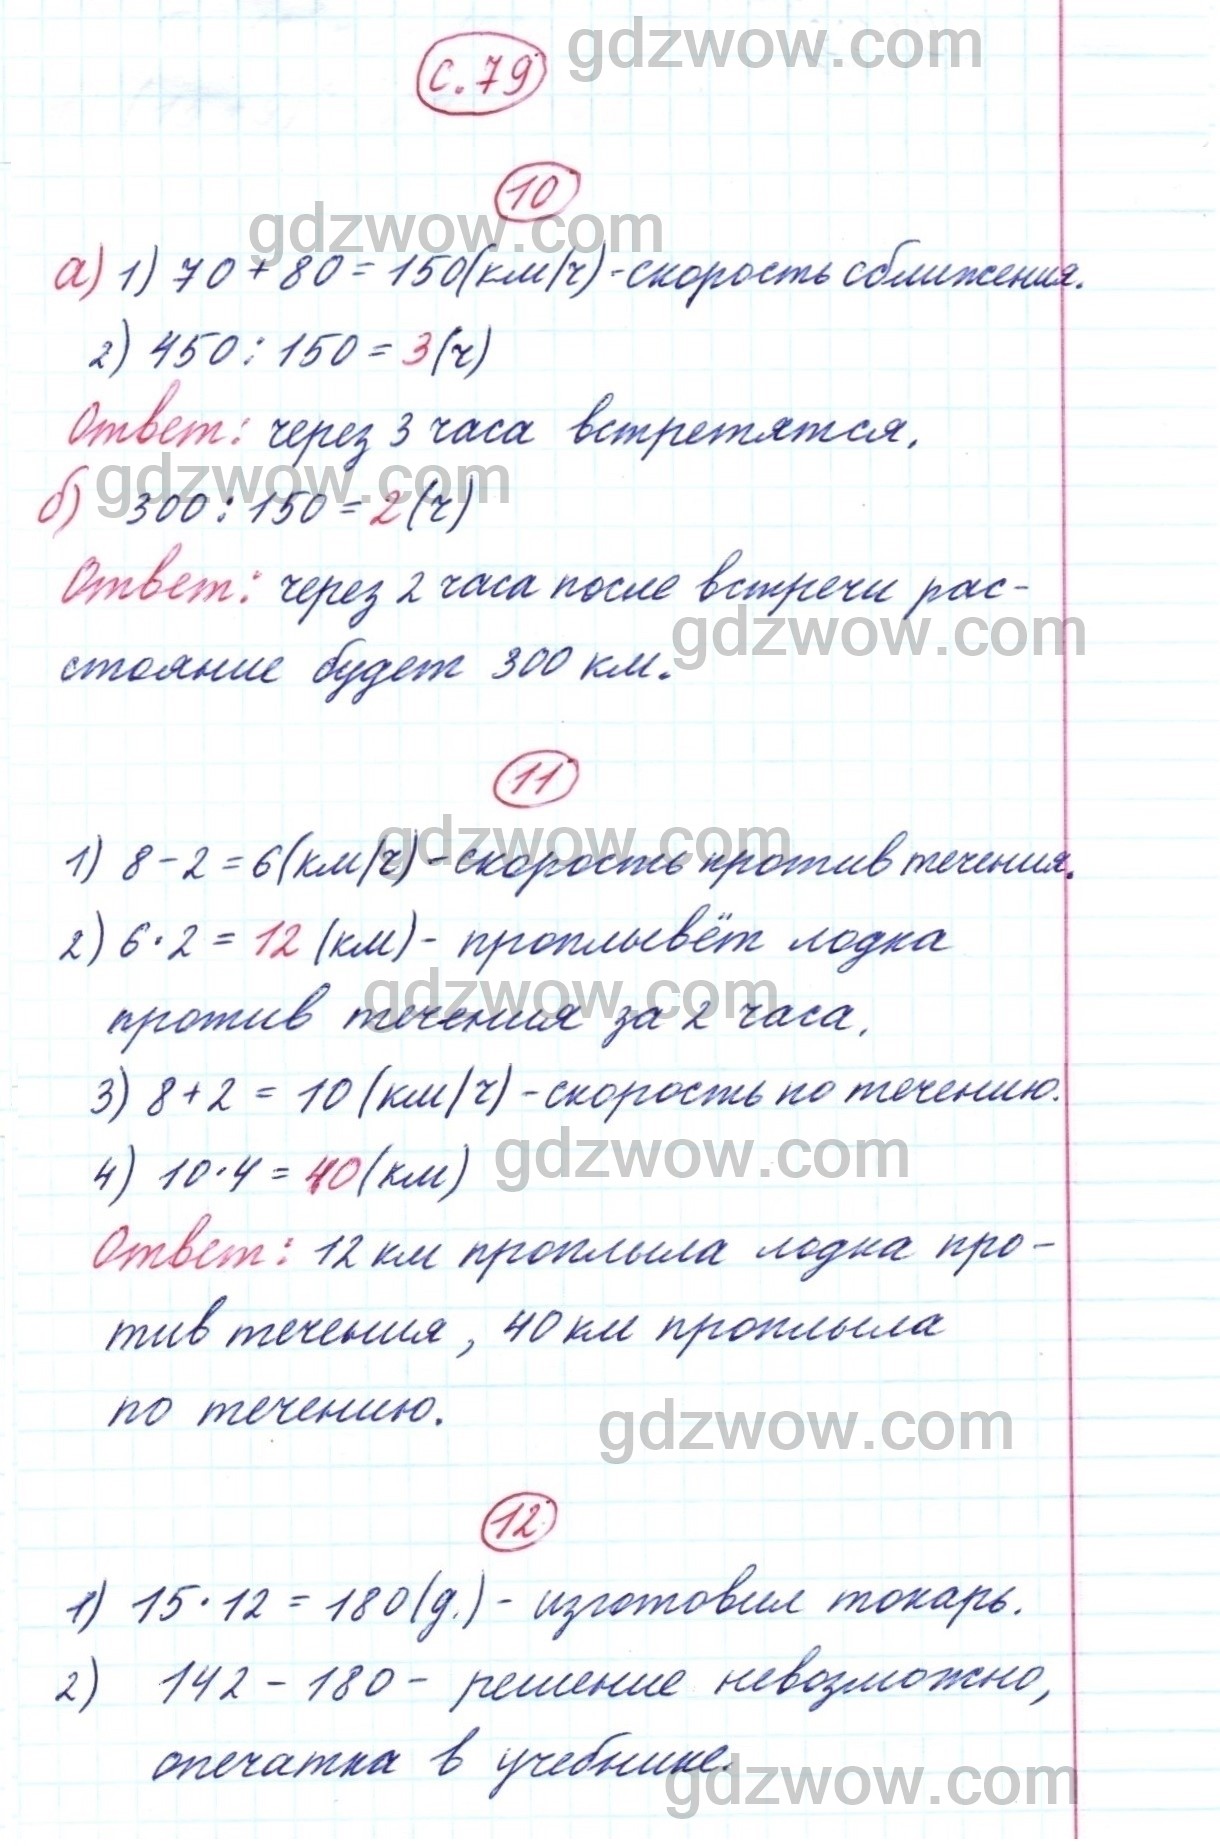 gdzwow.com
с. 79
10
gdzwow.com
а) 1) 70 + 80 = 150 (км/ч) - скорость сближения.
2) 450 : 150 = 3 (ч)
Ответ: через 3 часа встретятся.
gdzwow.com
б) 300 : 150 = 2 (ч)
Ответ: через 2 часа после встречи рас-
gdzwow.com
стояние будет 300 км.
11
gdzwow.com
1) 8 - 2 = 6 (км/ч) - скорость против течения.
2) 6 · 2 = 12 (км) - проплывёт лодка
gdzwow.com
против течения за 2 часа.
3) 8 + 2 = 10 (км/ч) - скорость по течению.
gdzwow.com
4) 10 · 4 = 40 (км)
Ответ: 12 км проплыла лодка про-
тив течения, 40 км проплыла
по течению.
gdzwow.com
12
1) 15 · 12 = 180 (д.) - изготовил токарь.
2) 142 - 180 - решение невозможно,
опечатка в учебнике.
gdzwow.com